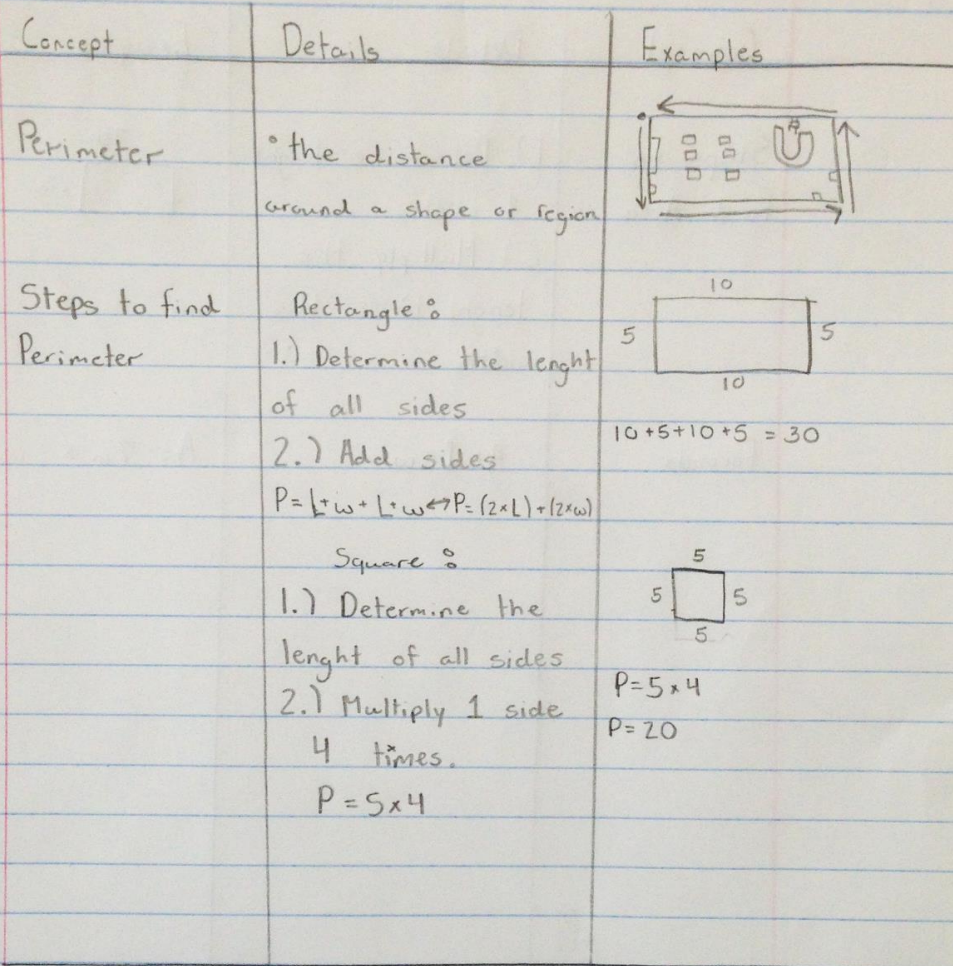 Concept Details Examples
Perimeter • the distance
around a shape or region
Steps to find Rectangle :
Perimeter 1.) Determine the lenght
of all sides
2.) Add sides
P=L+w+L+w↔P=(2×L)+(2×w)
10
5 5
10
10+5+10+5 = 30
Square :
1.) Determine the
lenght of all sides
2.) Multiply 1 side
4 times.
P=5×4
5
5 5
5
P=5×4
P=20